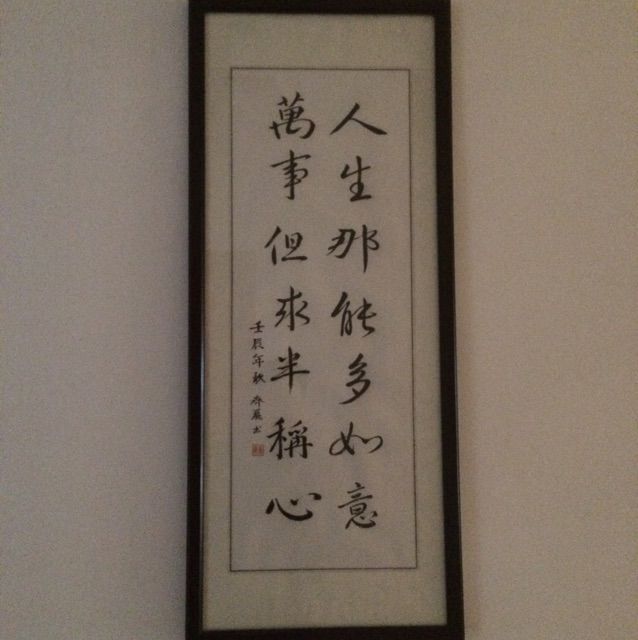 人生那能多如意
萬事但求半稱心
壬辰年秋